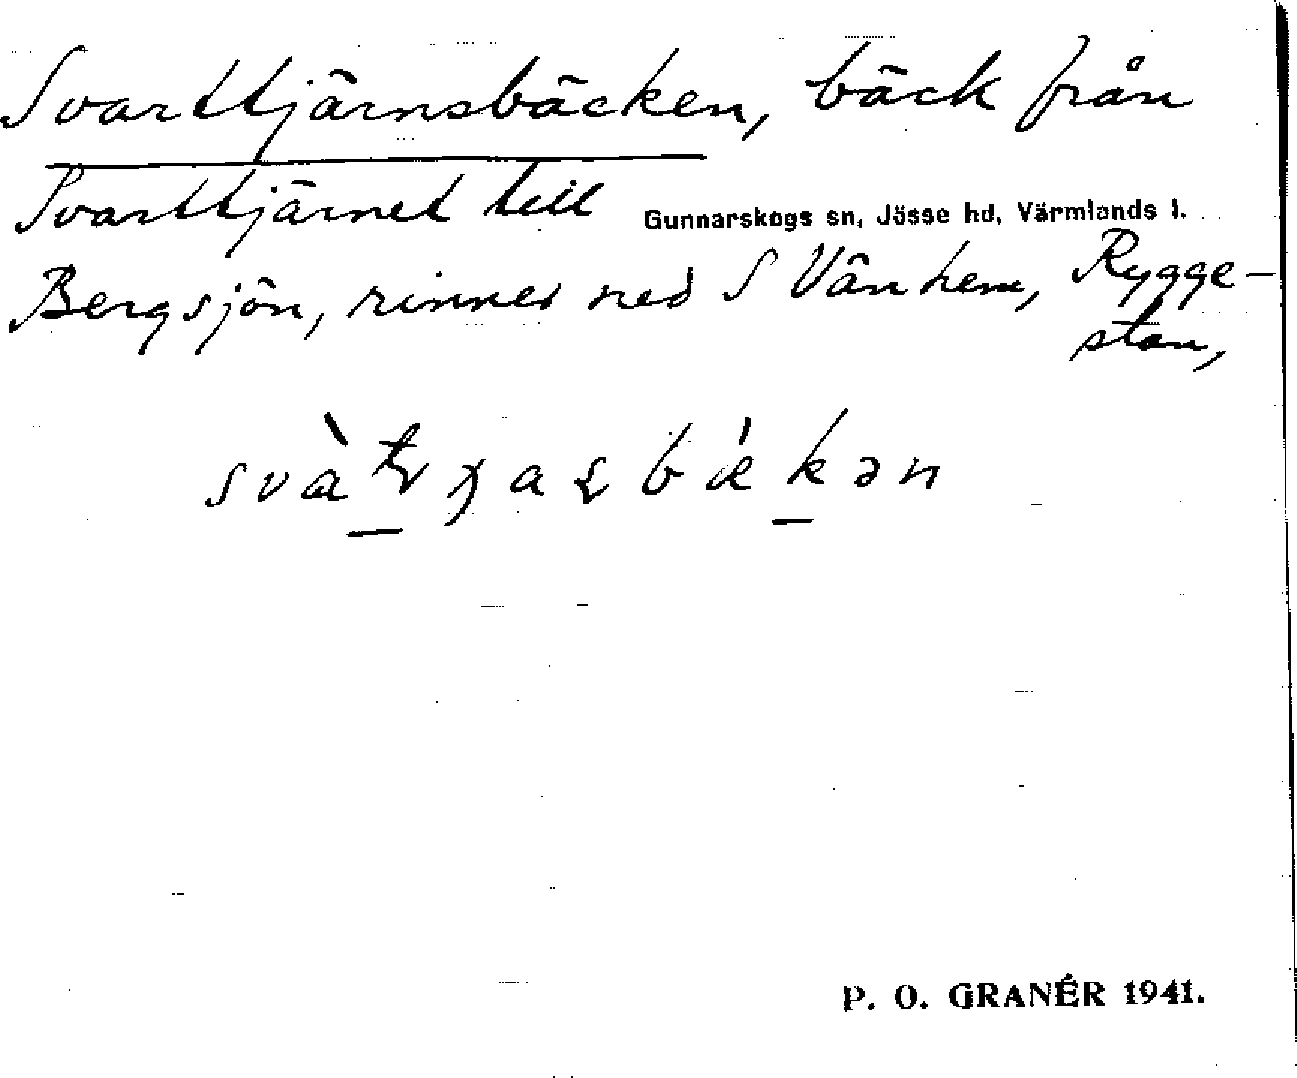 Svarttjärnsbäcken, bäck från
Svarttjärnet till
Gunnarskogs sn, Jösse hd, Värmlands l.
Bergsjön, rinner ned S Vänhem, Rygge-
stan,
P. O. GRANÉR 1941.